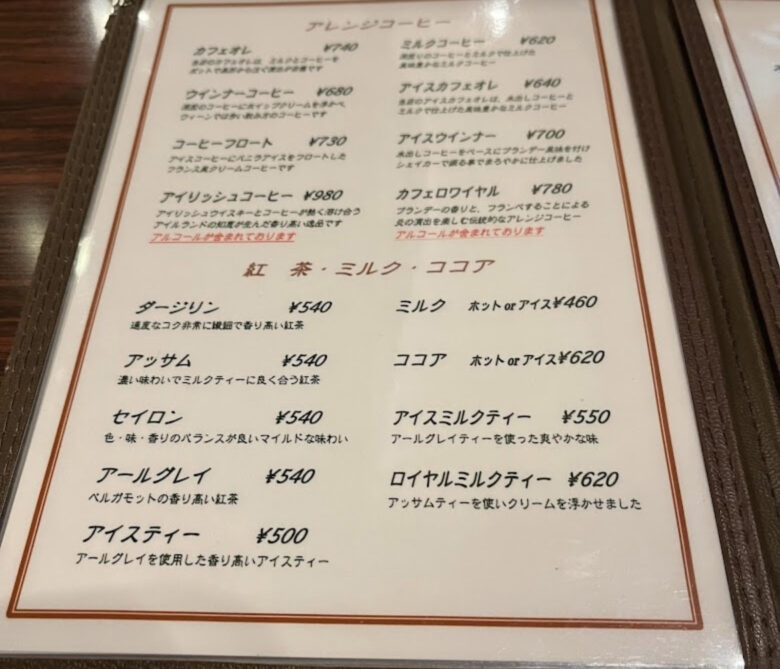 アレンジコーヒー
カフェオレ ¥740
当店のカフェオレは、ミルクとコーヒーを
ポットで高所から注ぐ演出が自慢です
ミルクコーヒー ¥620
深煎りのコーヒーとミルクで仕上げた
風味豊かなミルクコーヒー
ウインナーコーヒー ¥680
深煎のコーヒーにホイップクリームを浮かべ、
ウィーンでは多い飲み方のコーヒーです
アイスカフェオレ ¥640
当店のアイスカフェオレは、水出しコーヒーと
ミルクで仕上げた風味豊かなミルクコーヒー
コーヒーフロート ¥730
アイスコーヒーにバニラアイスをフロートした
フランス風クリームコーヒーです
アイスウインナー ¥700
水出しコーヒーをベースにブランデー風味を付け
シェイカーで振る事でまろやかに仕上げました
アイリッシュコーヒー ¥980
アイリッシュウイスキーとコーヒーが熱く溶け合う
アイルランドの知恵が生んだ香り高い逸品です
アルコールが含まれております
カフェロワイヤル ¥780
ブランデーの香りと、フランベすることによる
炎の演出を楽しむ伝統的なアレンジコーヒー
アルコールが含まれております
紅 茶・ミルク・ココア
ダージリン ¥540
適度なコク非常に繊細で香り高い紅茶
ミルク ホット or アイス ¥460
アッサム ¥540
濃い味わいでミルクティーに良く合う紅茶
ココア ホット or アイス ¥620
セイロン ¥540
色・味・香りのバランスが良いマイルドな味わい
アイスミルクティー ¥550
アールグレイティーを使った爽やかな味
アールグレイ ¥540
ベルガモットの香り高い紅茶
ロイヤルミルクティー ¥620
アッサムティーを使いクリームを浮かせました
アイスティー ¥500
アールグレイを使用した香り高いアイスティー